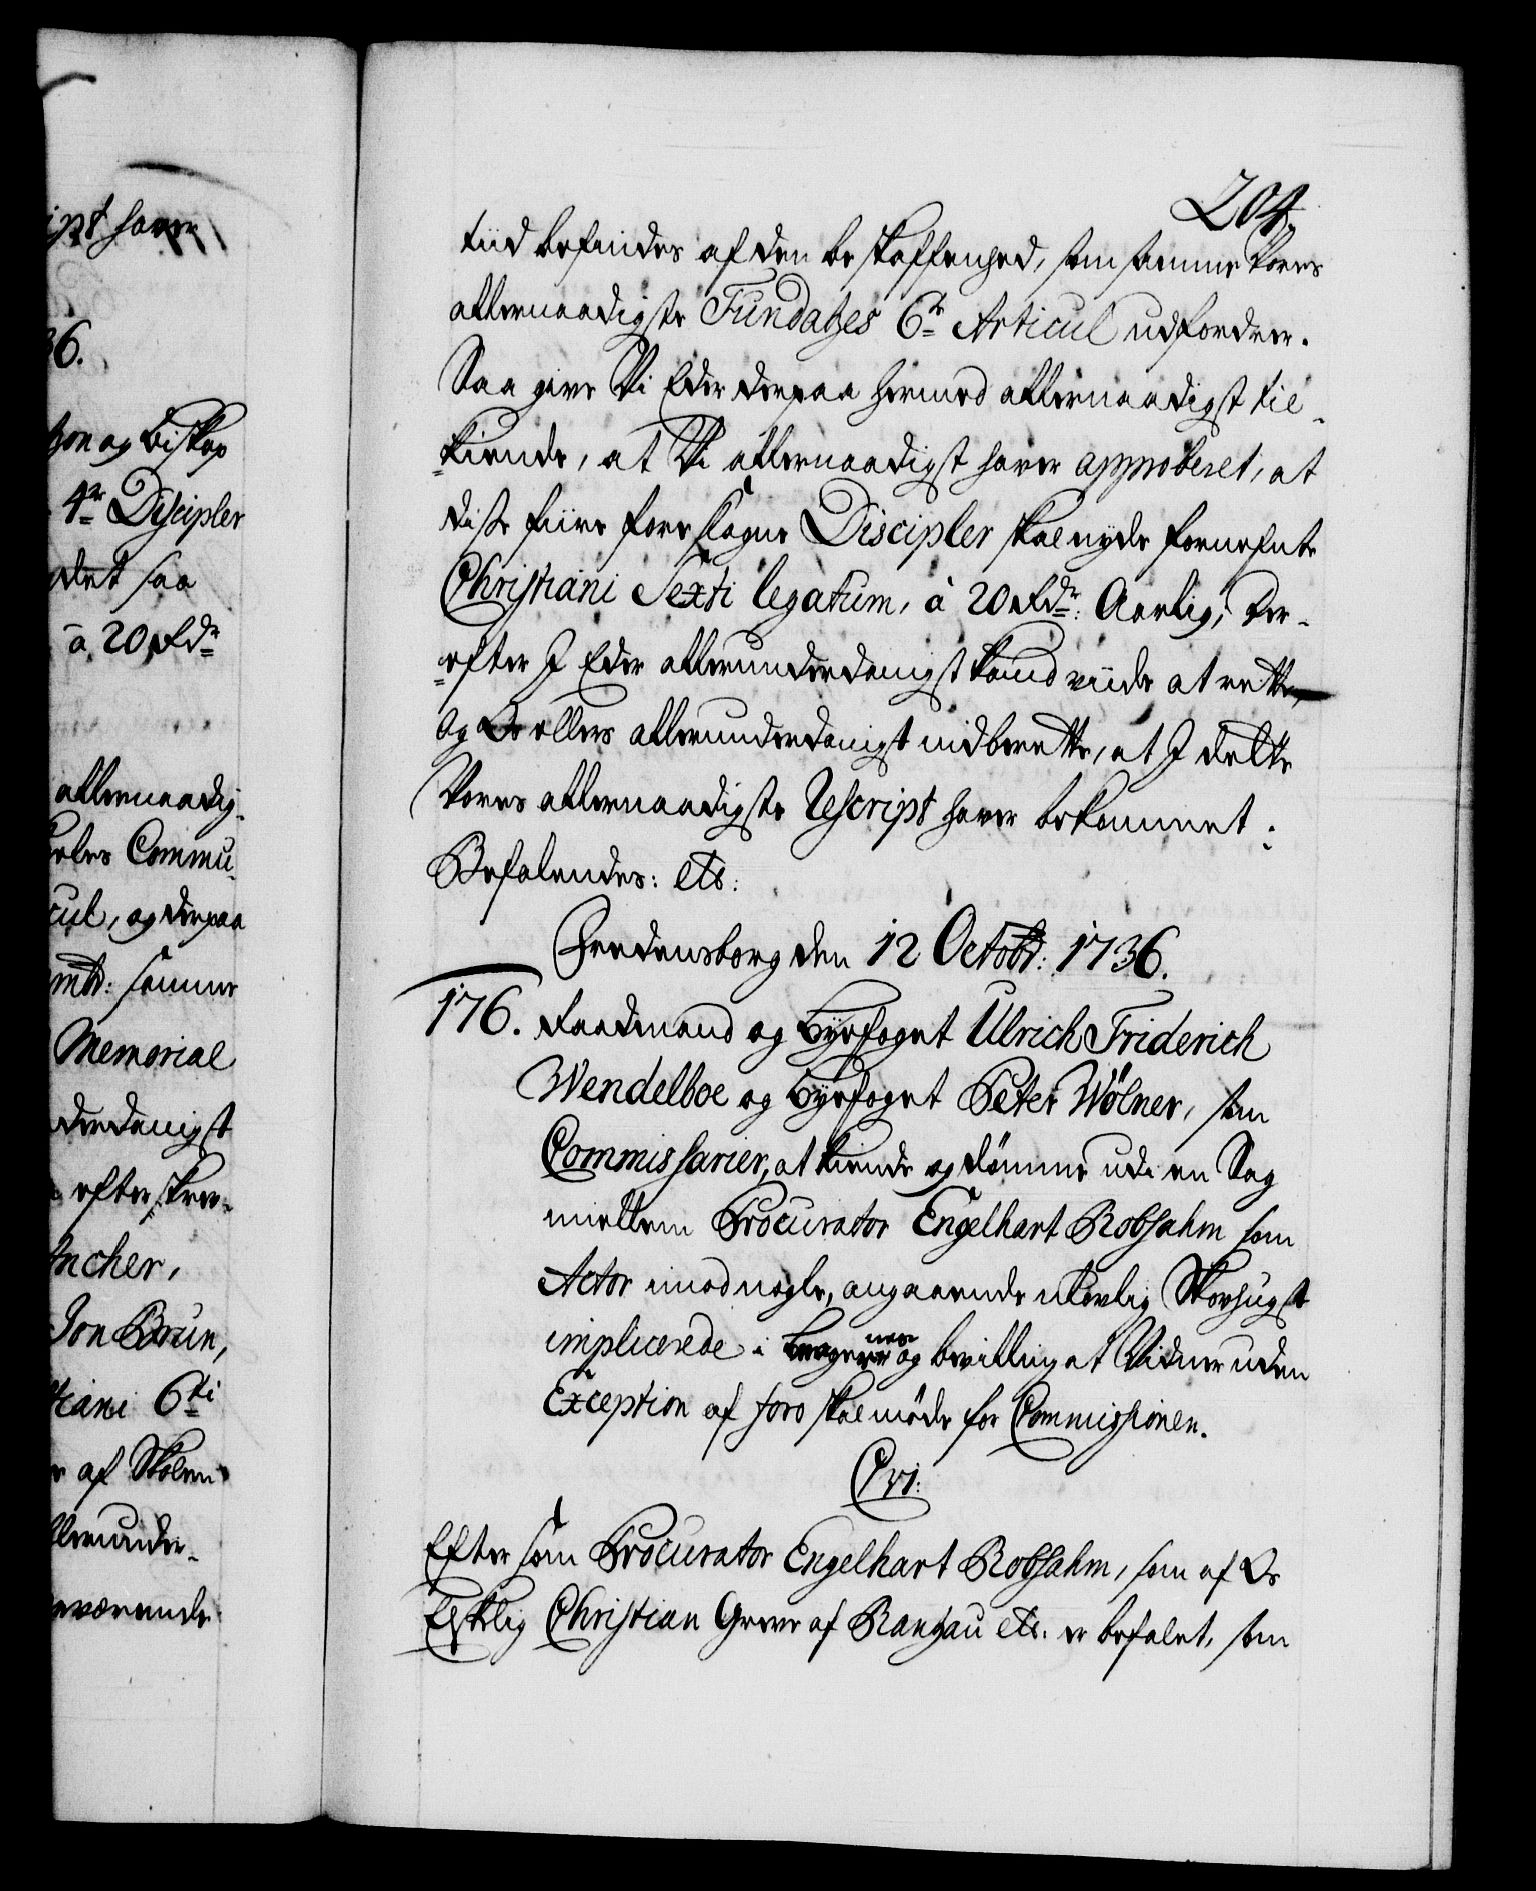 ipt haver
36.
og Biskop
4re Discipler
det saa
à 20 Rdr
allernaadig-
Commu-
cul, og derpaa
samme
Memorial
derdanigst
efterskrev-
Ancher,
Jon Brun,
tiani 6ti
af Skolen
llerunder-
nærværende
204.
tiid befindes af den beskaffenhed, som samme Vores
allernaadigste Fundatzes 6te Articul udfordrer.
Saa give Vi Eder derpaa hermed allernaadigst til-
kiende, at Vi allernaadigst haver approberet, at
disse fiire foreslagne Discipler skal nyde fornefnte
Christiani Sexti legatum, à 20 Rdr: Aarlig; Der-
efter I Eder allerunderdanigst kand viide at rette,
og Os ellers allerunderdanigst indberette, at I dette
Vores allernaadigste Rescript haver bekommet:
Befalendes: etc:
Fredensborg den 12 Octobr: 1736.
176. Raadmand og Byefoget Ulrich Friderich
Wendelboe og Byefoget Peter Wölner, som
Commissarier, at kiende og dømme udi en Sag
mellem Procurator Engelhart Robsahm som
Actor imod nogle, angaaende ulovlig Skovhugst
implicerede i og bevilling at Vidner uden
Exception af foro skal møde for Commissionen.
C VI:
Eftersom Procurator Engelhart Robsahm, som af Os
Elskelig Christian Greve af Rantzau etc: er befalet, som